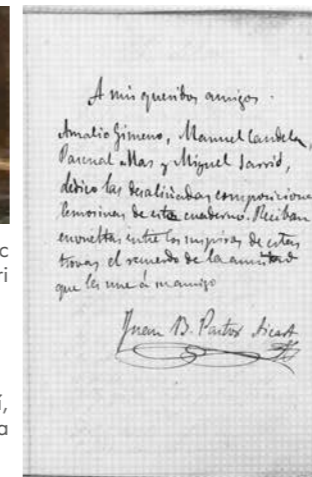 A mis queridos amigos.
Amalio Gimeno, Manuel Candela,
Pascual Mas y Miguel Sarrió,
dedico las desaliñadas composiciones
lemosinas de este cuaderno. Reciban
envueltas entre los suspiros de estas
trovas el recuerdo de la amistad
que les une á su amigo
Juan B. Pastor Aicart
c
ri
í,
a